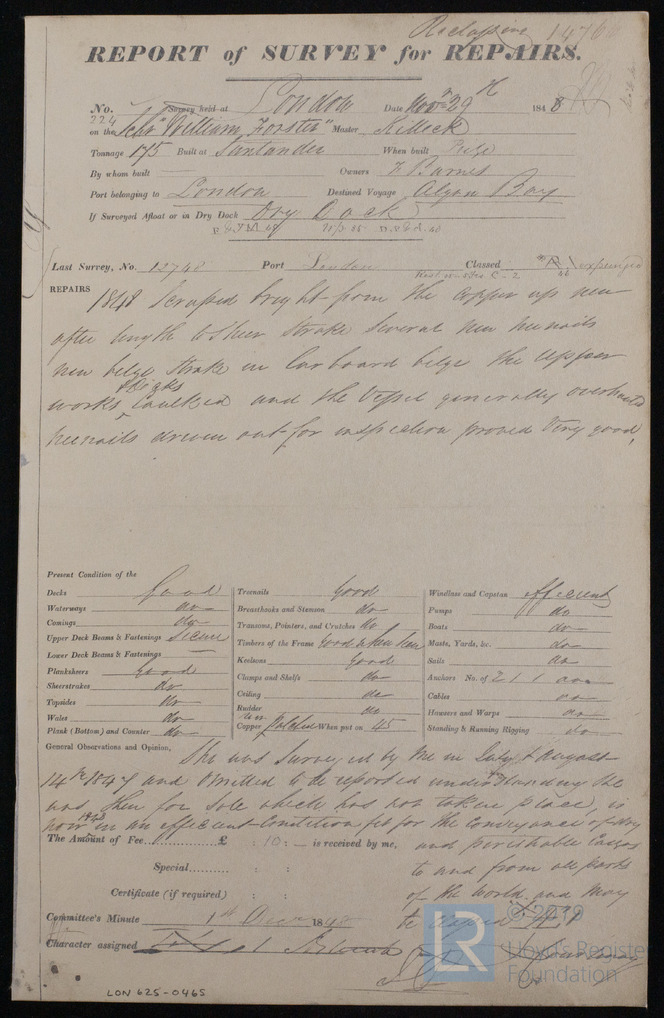 Reclassing 1476
REPORT of SURVEY for REPAIRS.
No. 224 Survey held at London Date Nov 29th 1848
on the Schr "William Forster" Master Killeck
Tonnage 175 Built at Santander When built Prize
By whom built — Owners F Barnes
Port belonging to London Destined Voyage Algoa Bay
If Surveyed Afloat or in Dry Dock Dry Dock
Last Survey, No. 12748 Port London Classed expunged
REPAIRS 1848 Scraped bright from the Copper up new
after length to Sheer Strake Several New treenails
new belge Strake in Larboard belge the Upper
works & Bights Caulked and the Vessel generally overhauled
treenails driven out for inspection proved Very good,
Present Condition of the
Decks Good
Waterways do
Comings do
Upper Deck Beams & Fastenings Secure
Lower Deck Beams & Fastenings —
Planksheers Good
Sheerstrakes do
Topsides do
Wales do
Plank (Bottom) and Counter do
Treenails Good
Breasthooks and Stemson do
Transoms, Pointers, and Crutches do
Timbers of the Frame Good where Seen
Keelsons Good
Clamps and Shelfs do
Ceiling do
Rudder do
Copper When put on 45
Windlass and Capstan efficient
Pumps do
Boats do
Masts, Yards, &c. do
Sails do
Anchors No. of 2 1 1 do
Cables do
Hawsers and Warps do
Standing & Running Rigging do
General Observations and Opinion, She was Surveyed by Me in July & August
14th 1847 and Omitted to be reported understanding She
was then for Sale which has not taken place, is
now 1848 in an efficient Condition fit for the Conveyance of dry
and perishable Cargo
to and from all parts
of the World and May
be
The Amount of Fee £ 10 : — is received by me,
Special : :
Certificate (if required) : :
Committee's Minute 1st Decr 1848
Character assigned
LON 625-0465
© 2019
LR
Lloyd's Register
Foundation